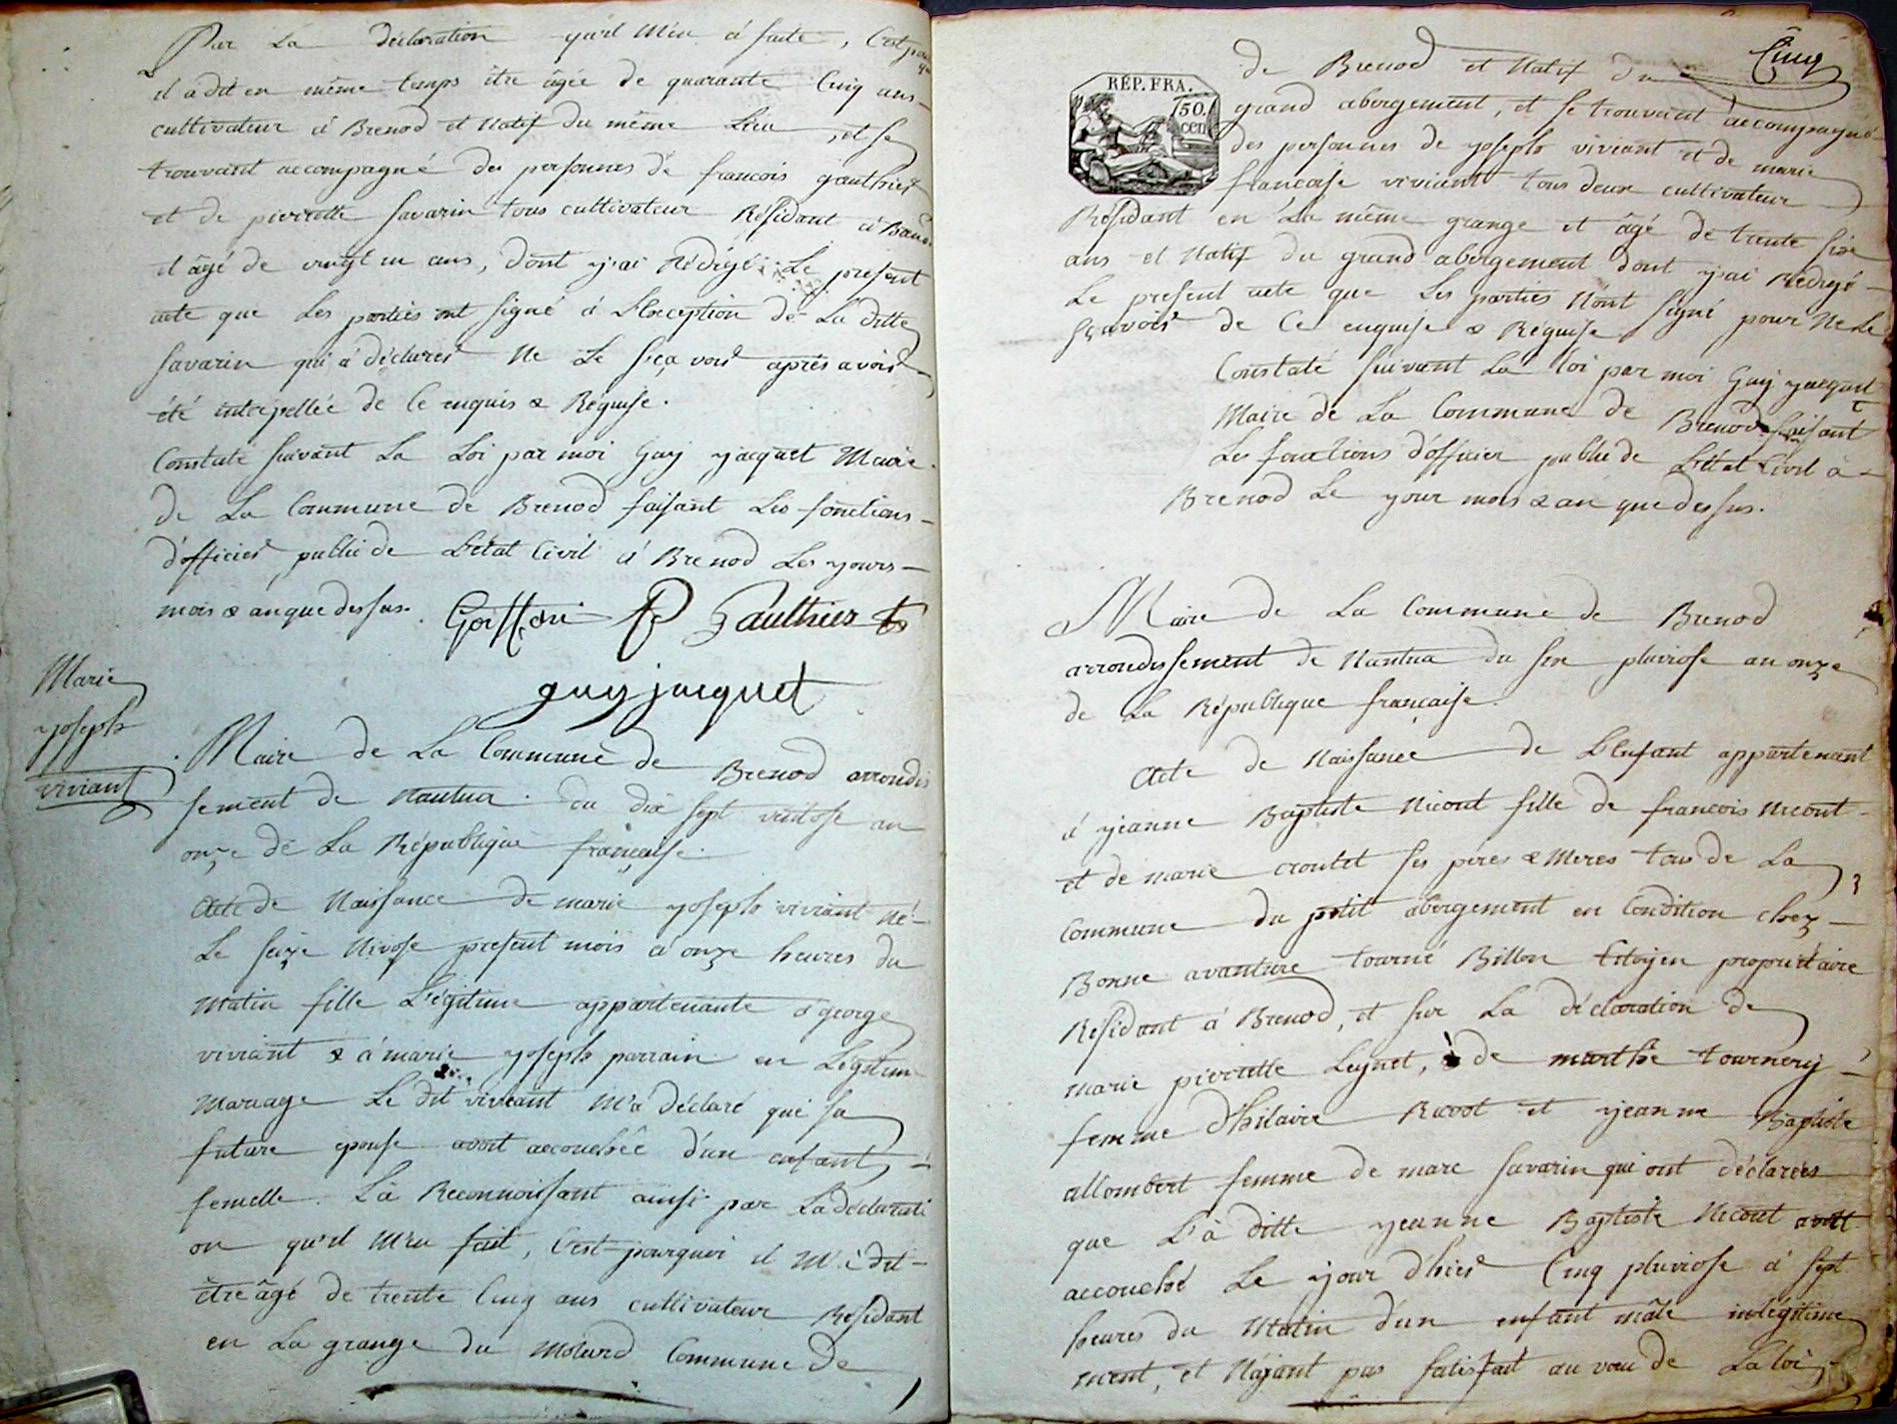 Par La declaration qu'il M'en á faite, C'est pour
il a dit en même temps être âgée de quarante Cinq ans
cultivateur á Brenod et Natif du même Lieu, et se
trouvant accompagné des personnes de francois gauthier
et de pierrette savarin tous cultivateur Résidant á
et âgé de vingt un ans, dont y'ai Rédigé Le présent
acte que Les parties ont signé á L'Exception de La ditte
savarin qui á déclarer Ne Le sçavoir aprés avoir
été interpellée de Ce enquis & Requise.
Constaté suivant La Loi par moi Guy yacquet Maire
de La Commune de Brenod faisant Les fonctions
d'officier public de L'état Civil á Brenod Les yours
mois & an que dessus. Goiffon P Gauthier
guy jacquet
Marie
yoseph
viviant
Maire de La Commune de Brenod arrondis
sement de Nantua du dix sept an
onze de La République française.
Acte de Naissance de marie yoseph viviant Né
Le seize Nivose present mois á onze heures du
Matin fille Légitime appartenante á george
viviant & á marie yoseph parrain en Légitime
Mariage Le dit viviant M'a déclaré que sa
future épouse avoit accouchée d'un enfant
femelle. La Reconnoissant ainsi par La déclarati
on qu'il M'en fait, C'est pourquoi il M'á dit
être âgé de trente Cinq ans cultivateur Résidant
en La grange du Molard Commune de
Cinq
de Brenod et Natif du
RÉP. FRA.
50. cen
grand abergement, et se trouvant accompagné
des personnes de yoseph viviant et de marie
francoise viviant tous deux cultivateur
Résidant en La même grange et âgé de trente six
ans et Natif du grand abergement dont y'ai Rédigé
Le présent acte que Les parties N'ont signé pour Ne Le
sçavoir de Ce enquise & Requise
Constaté suivant La loi par moi Guy yacquet
Maire de La Commune de Brenod faisant
Les fonctions d'officier public de L'état Civil á
Brenod Le your mois & an que dessus.
Maire de La Commune de Brenod
arrondissement de Nantua du six pluviose an onze
de La République française.
Acte de Naissance de L'Enfant appartenant
á yeanne Baptiste Nicout fille de francois Nicout
et de marie croutet ses pères & Meres tous de La
Commune du petit abergement en Condition chez
Bonne avanture tourné Billon Citoyen propriétaire
Résidant á Brenod, et sur La déclaration de
marie pierrette Leynet, de marthe tournery
femme d'hilaire Ravot et yeanne Baptiste
allombert femme de marc savarin qui ont déclarées
que La ditte yeanne Baptiste Nicout avoit
accouché Le your d'hier Cinq pluviose á sept
heures du Matin d'un enfant mâle inlégitime
ment, et N'ayant pas satisfait au vœu de La loi